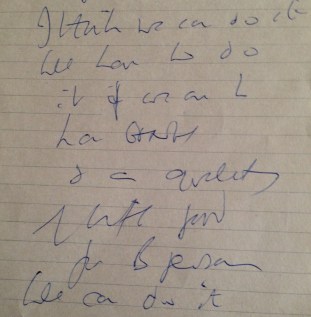 I think we can do it
We have to do
it if we are to
have
a quality
of life for
for B person
We can do it